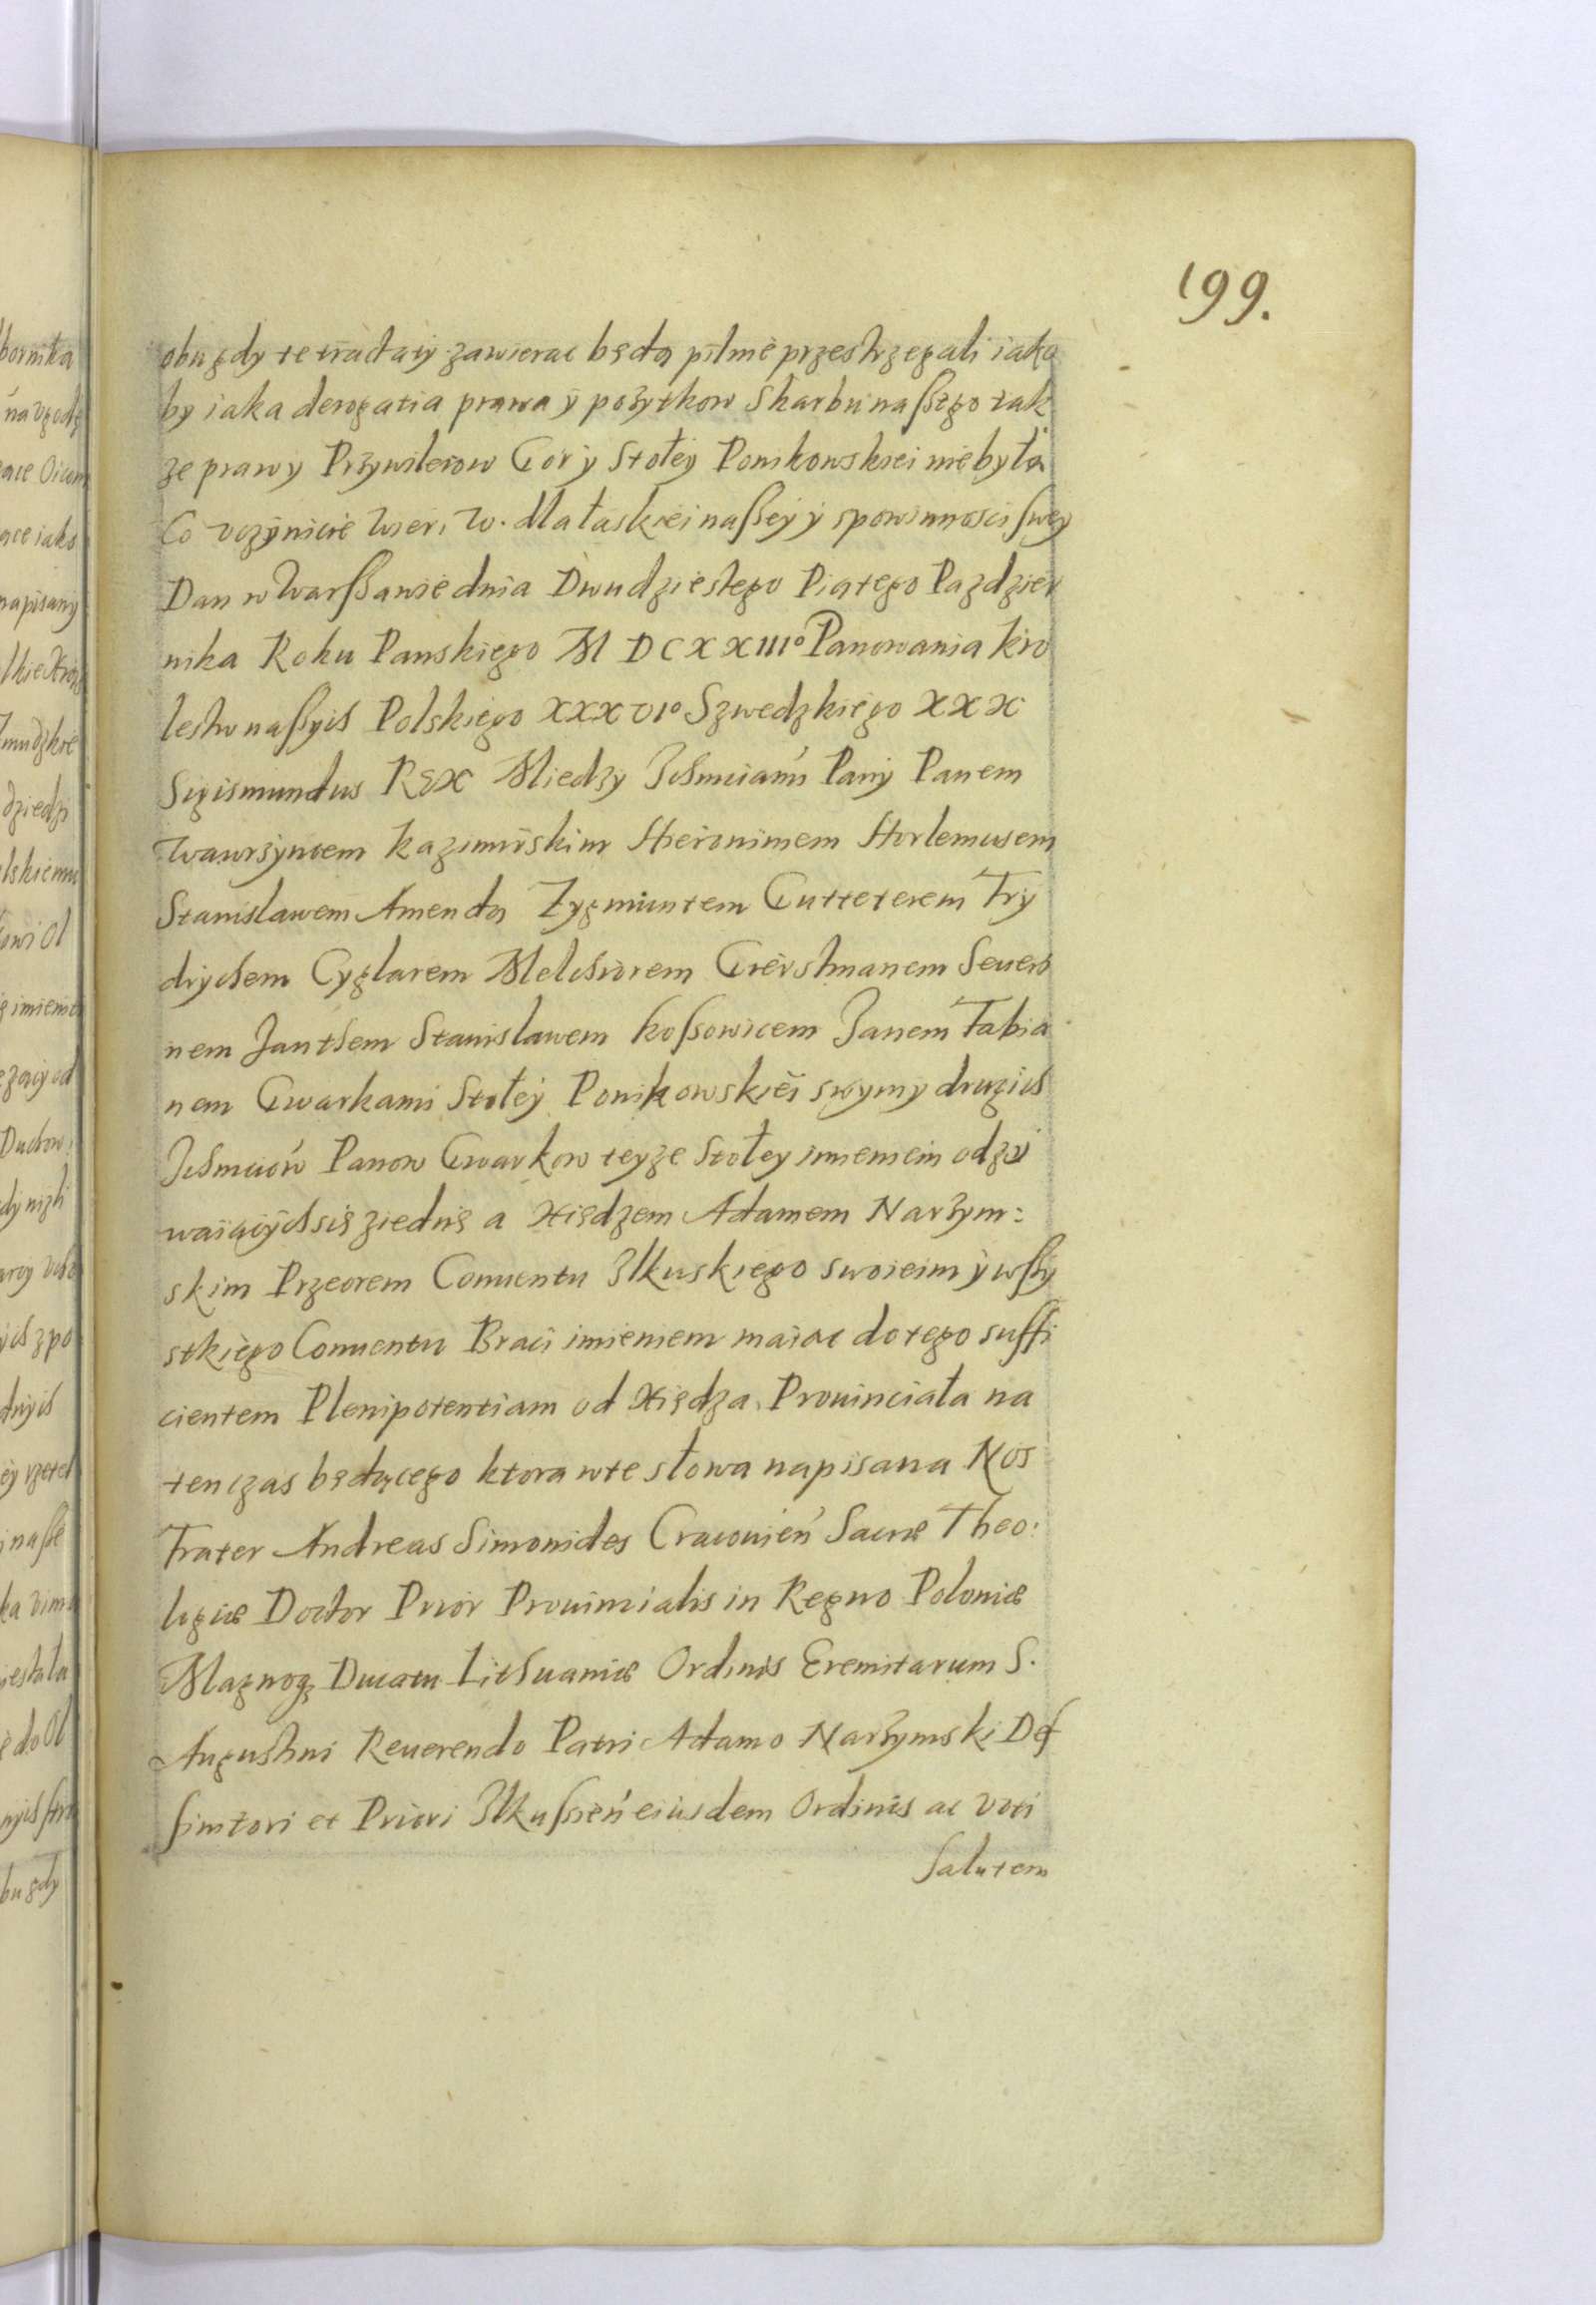 199.
obu gdy te tractaty zawierac będą pilnie przestrzegali iako
by iaka derogatia prawa y pożytkow Skarbu naßego tak
ze prawy Przywileiow Gory Stoły Ponikowskiei nie była
Co vczynicie wier. W. dla łaski ei naßey y spowinnosci swey
Dan w Warßawie dnia Dwudziestego Piątego Pazdzier
nika Roku Panskiego M DCXXIIIº Panowania kro
lestw naßych Polskiego XXXVIº Szwedzkiego XXX
Sigismundus Rex Miedzy Ichmciami Pany Panem
Wawrzyncem Kazimirskim Hieronimem Horlemusem
Stanislawem Amendą Zygmuntem Gutteterem Fry
drychem Cyglarem Melchiorem Gierstmanem Seuery
nem Janthem Stanislawem Koßowicem Janem Fabia
nem Gwarkami Stoły Ponikowskiei swymy drugich
Ichmciow Panow Gwarkow teyze Stoły imieniem odzy
waiących się ziednę a Xiędzem Adamem Narzym:
skim Przeorem Conuentu Ilkuskiego swoieim y wßy
stkiego Conuentu Braci imieniem maiąc do tego suffi
cientem Plenipotentiam od Xiędza Prouinciała na
ten czas będącego ktora w te słowa napisana Nos
Frater Andreas Simonides Cracouien Sacræ Theo:
logiæ Doctor Prior Prouincialis in Regno Poloniæ
Magnoq Ducatu Lithuaniæ Ordinis Eremitarum S.
Augustini Reuerendo Patri Adamo Narzymski Def
finitori et Priori Ilkußien eiusdem Ordinis ac Voti
Salutem